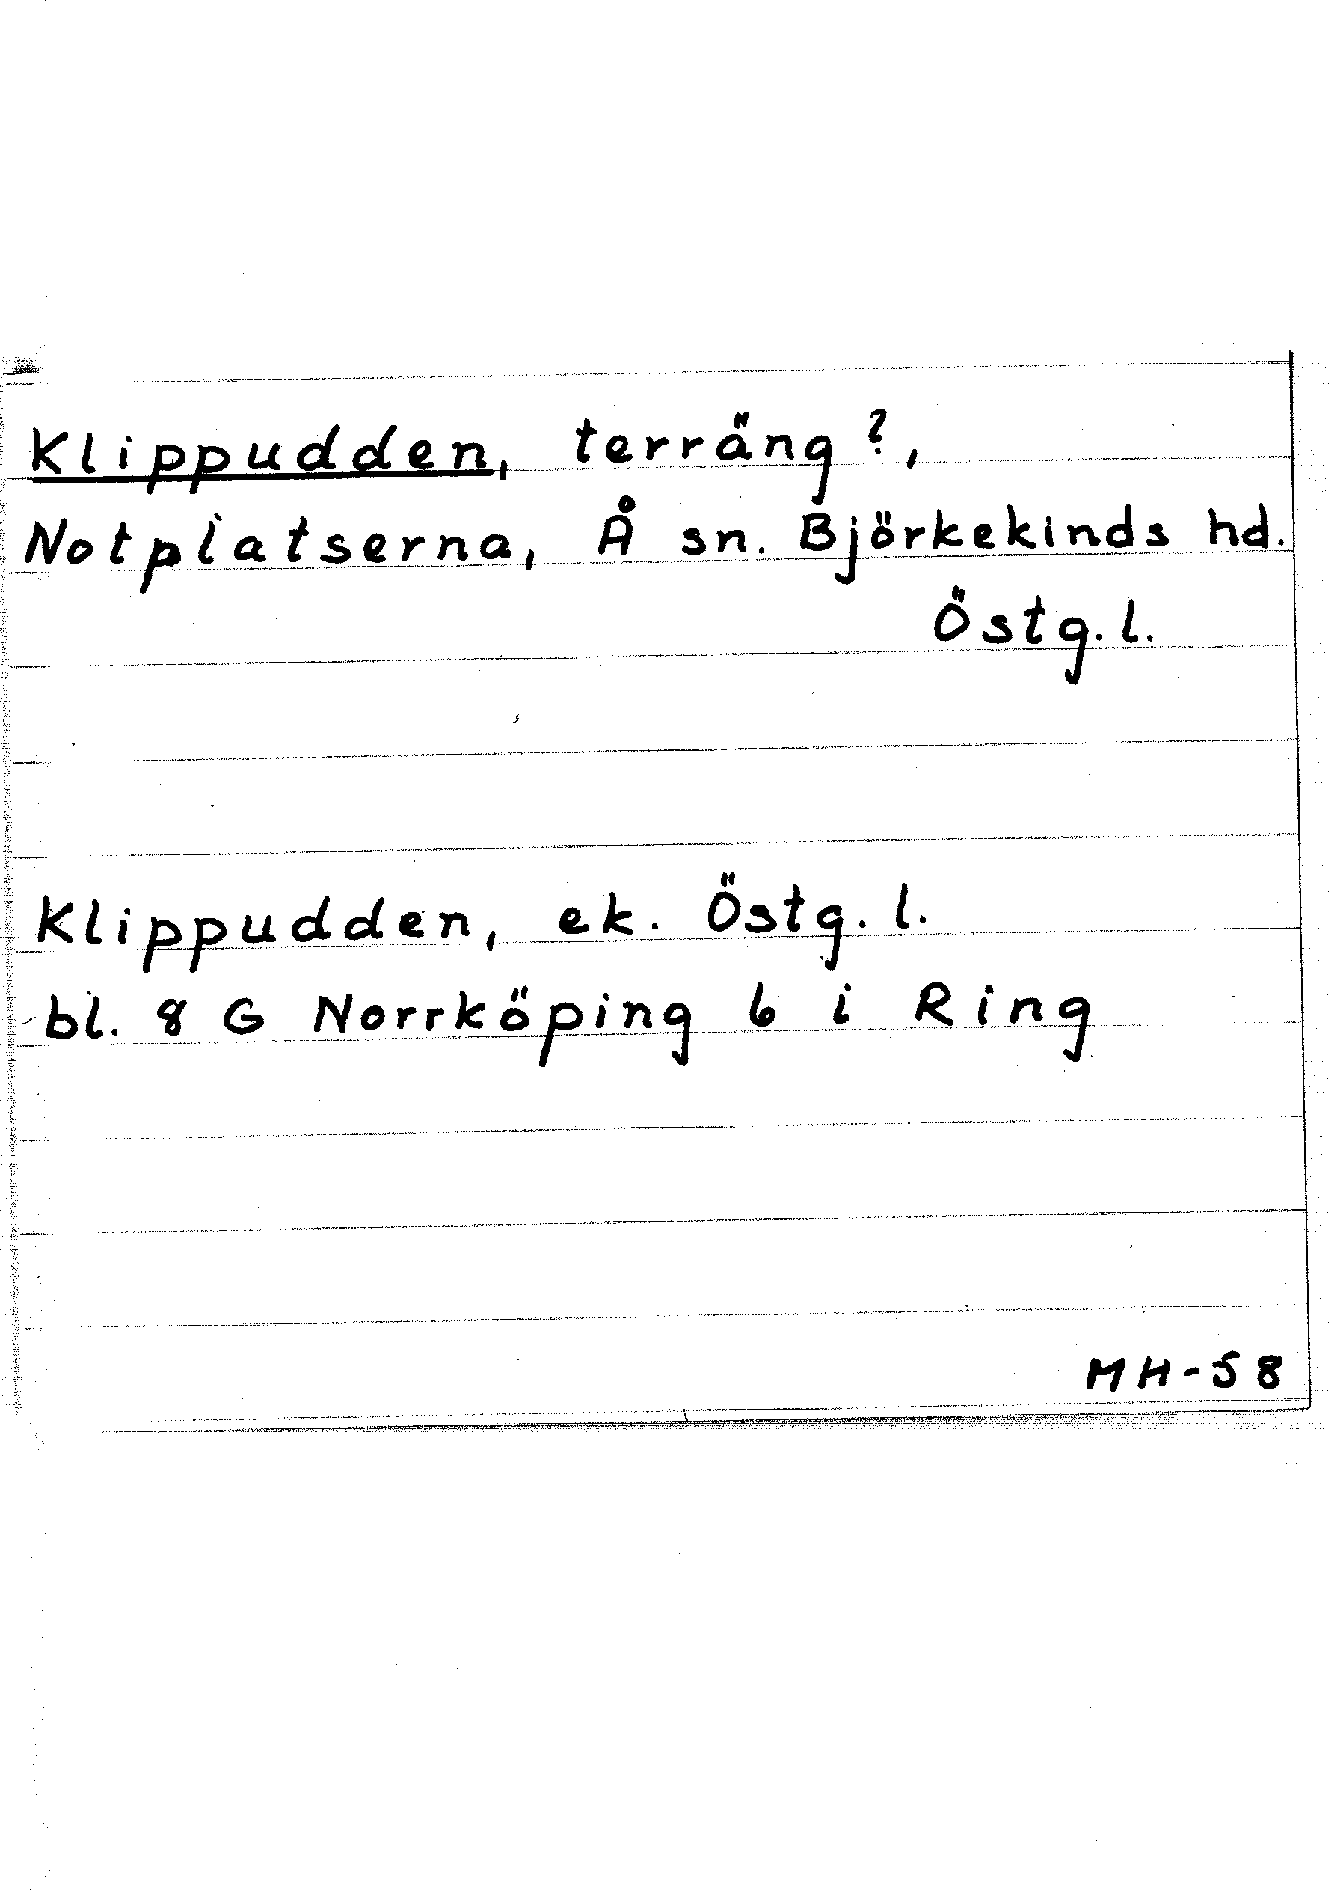 Klippudden, terräng?,
Notplatserna, Å sn. Björkekinds hd.
Östg. l.
Klippudden, ek. Östg. l.
bl. 8 G Norrköping 6 i Ring
MH-58